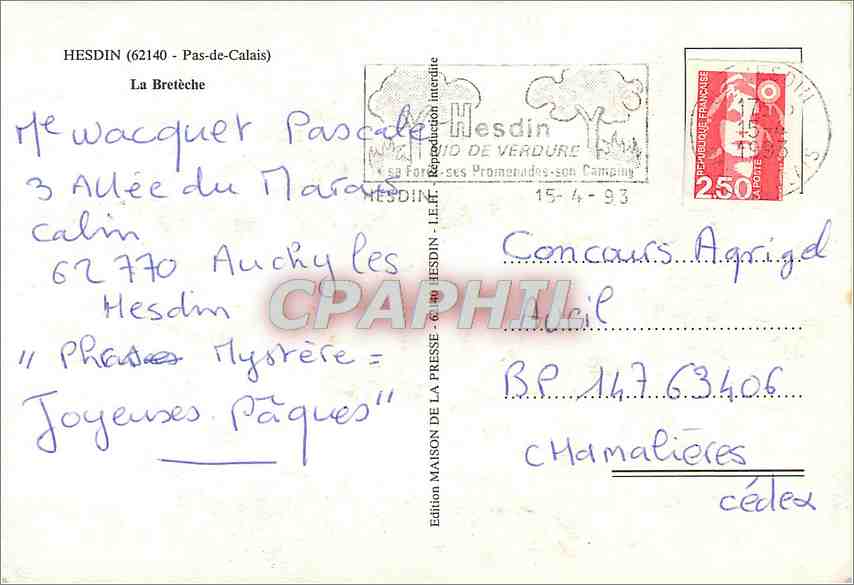 HESDIN (62140 - Pas-de-Calais)
La Bretèche
Me Wacquet Pascale
3 Allée du Marais
Calin
62 770 Auchy les
Hesdin
" Phrase Mystère =
Joyeuses Pâques "
Edition MAISON DE LA PRESSE - 62140 HESDIN - I.E.H. - Reproduction interdite
Hesdin
NID DE VERDURE
sa Forêt-ses Promenades-son Camping
HESDIN 15-4-93
HESDIN
17
15-4
1993
REPUBLIQUE FRANÇAISE
LA POSTE
2,50
Concours Agrigel
Avril
BP 147 63406
CHamalières
cédex
CPAPHIL